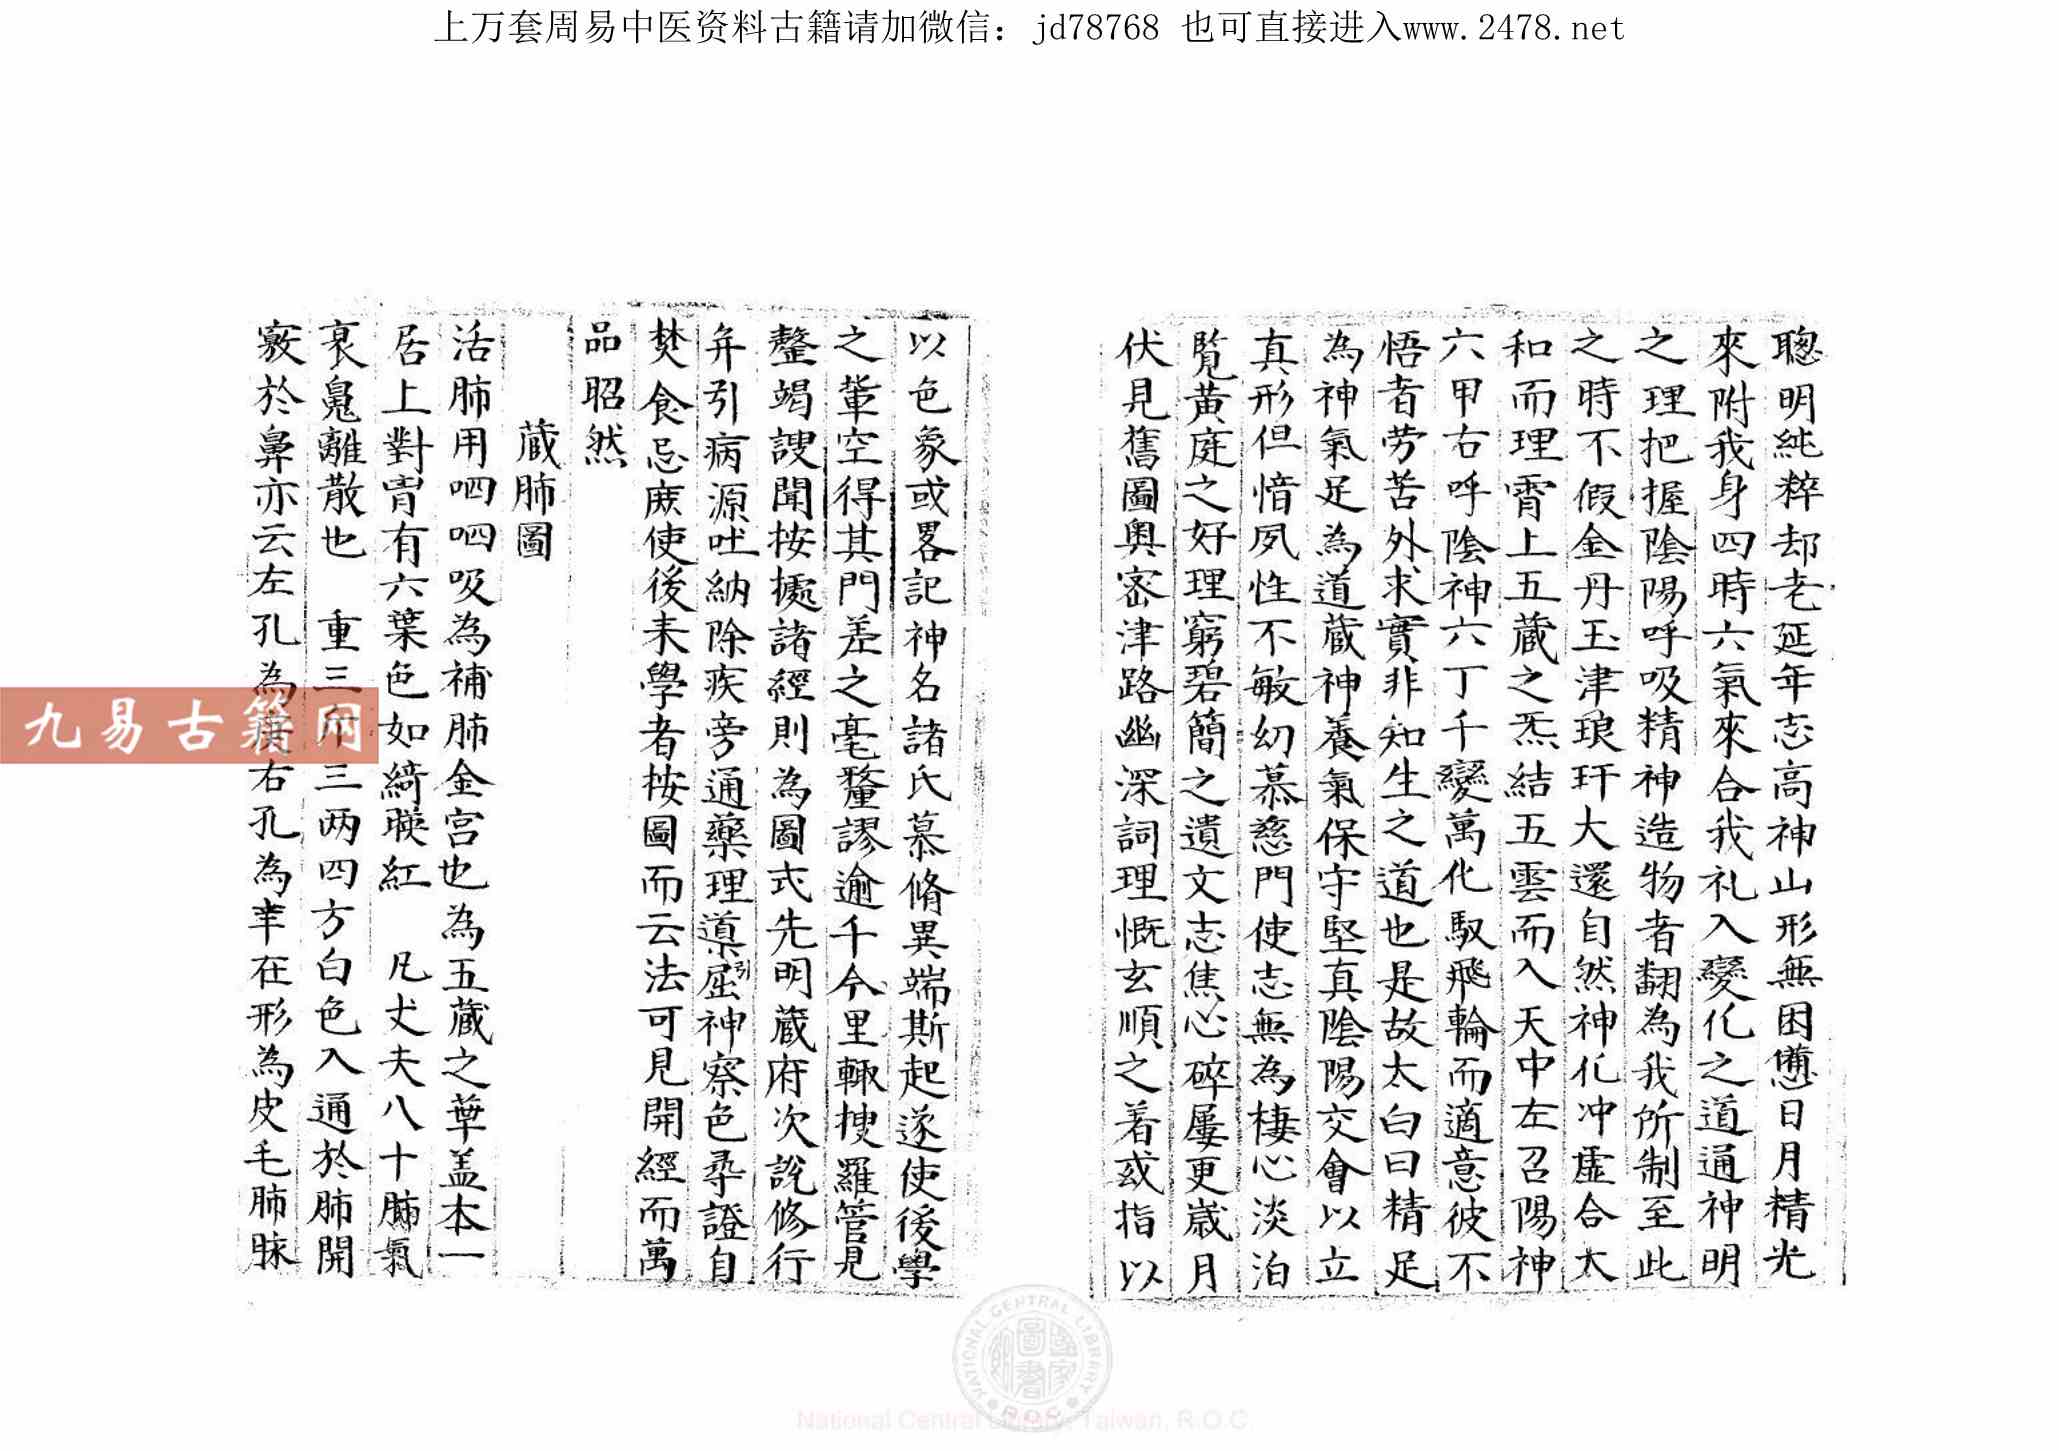 上万套周易中医资料古籍请加微信：jd78768 也可直接进入www.2478.net
聰明純粹却老延年志高神山形無困憊日月精光
來附我身四時六氣來合我礼入變化之道通神明
之理把握隂陽呼吸精神造物者翻為我所制至此
之時不假金丹玉津琅玕大還自然神化冲虛合太
和而理霄上五蔵之炁結五雲而入天中左召陽神
六甲右呼隂神六丁千變萬化馭飛輪而適意彼不
悟者劳苦外求實非知生之道也是故太白曰精足
為神氣足為道蔵神養氣保守堅真隂陽交會以立
真形但愔夙性不敏幻慕慈門使志無為棲心淡泊
覧黄庭之妤理窮碧簡之遺文志焦心碎屢更嵗月
伏見舊圖奥密津路幽深詞理慨玄順之者或指以
以色象或畧記神名諸氏慕脩異端斯起遂使後學
之軰空得其門差之毫釐謬逾千今里輙搜羅管見
罄竭謏聞按據諸經則為圖式先明蔵府次說修行
并引病源吐納除疾旁通藥理導引屈神察色尋證自
焚食忌庶使後来學者按圖而云法可見開經而萬
品昭然
蔵肺圖
活肺用呬呬吸為補肺金宫也為五蔵之華盖本一
居上對胷有六葉色如綺暎紅 凡丈夫八十肺氣
衰䰟離散也 重三斤三两四方白色入通於肺開
竅於鼻亦云左孔為庚右孔為辛在形為皮毛肺脉
九易古籍网
NATIONAL CENTRAL LIBRARY
R.O.C
國家圖書館
National Central Library, Taiwan, R.O.C